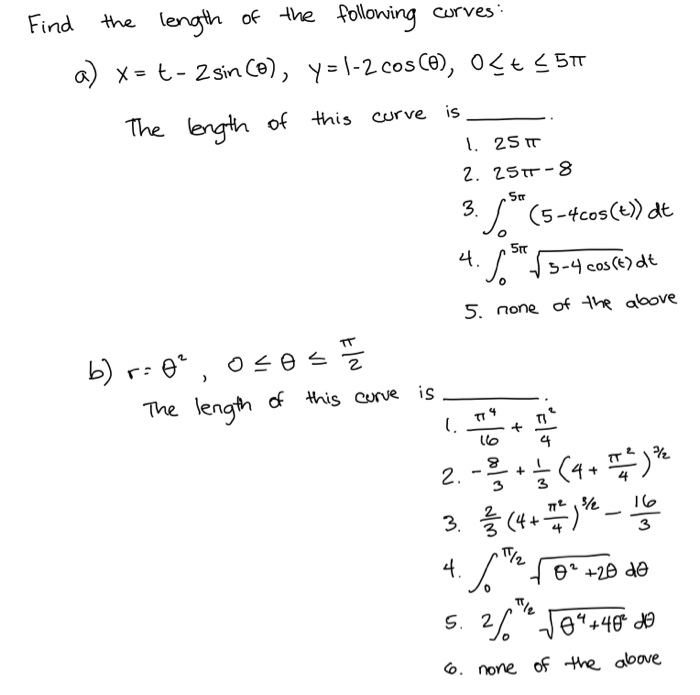 Find the length of the following curves:
a) x = t - 2 sin(θ), y = 1-2 cos(θ), 0 ≤ t ≤ 5π
The length of this curve is ______.
1. 25π
2. 25π - 8
3. ∫₀^5π (5-4cos(t)) dt
4. ∫₀^5π √(5-4 cos(t)) dt
5. none of the above
b) r = θ², 0 ≤ θ ≤ π/2
The length of this curve is ______.
1. π⁴/16 + π²/4
2. -8/3 + 1/3 (4 + π²/4)^3/2
3. 2/3 (4 + π²/4)^3/2 - 16/3
4. ∫₀^π/2 √(θ² + 2θ) dθ
5. 2∫₀^π/2 √(θ⁴ + 4θ²) dθ
6. none of the above